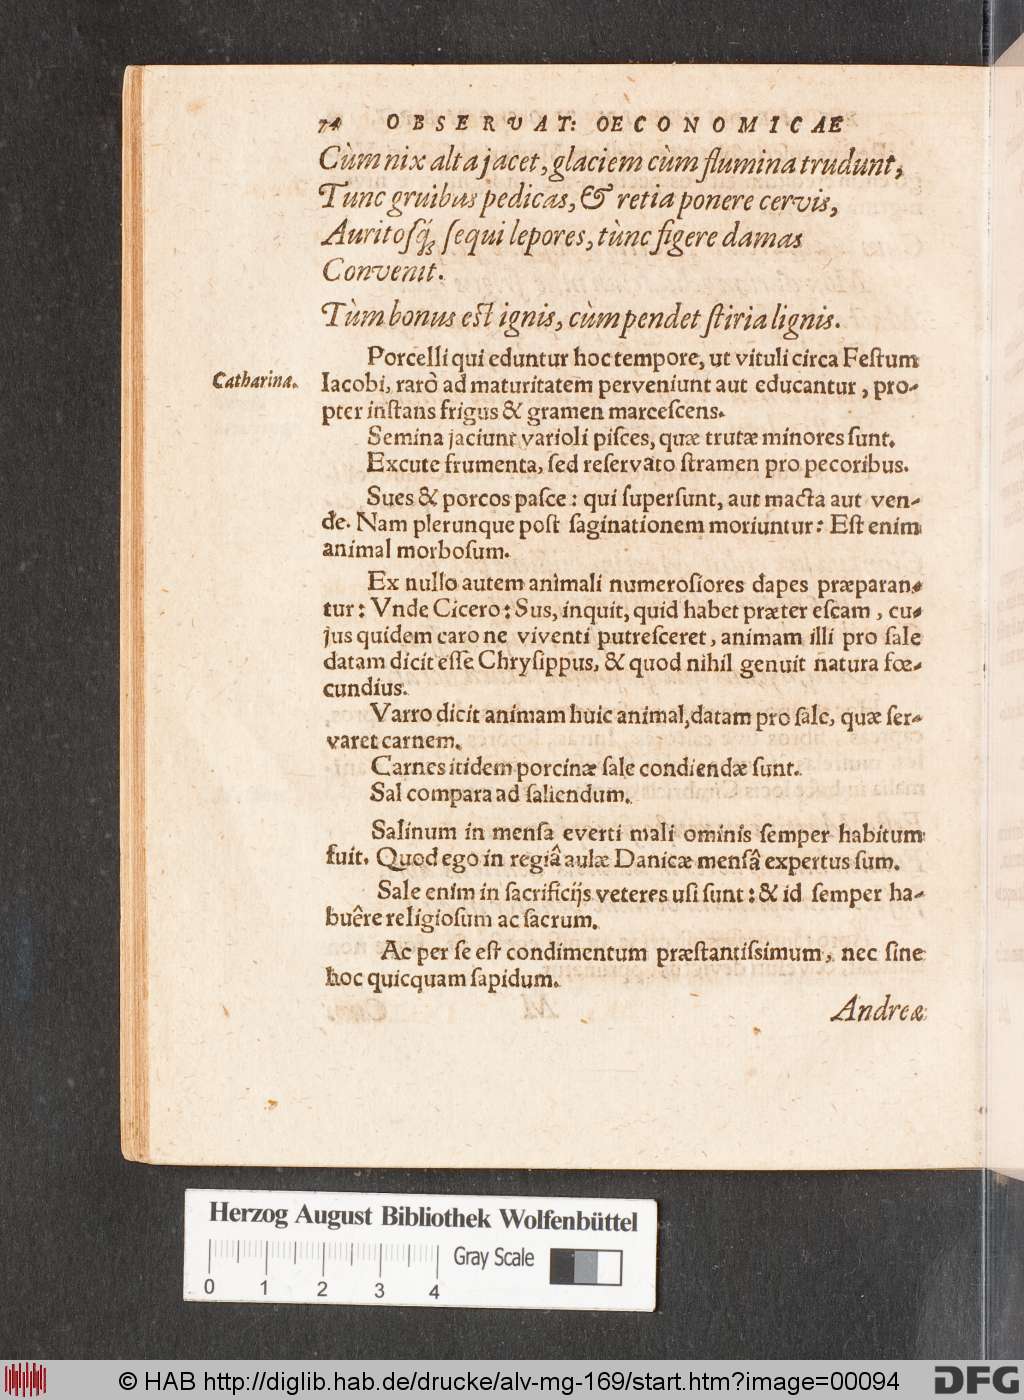 74 OBSERVAT: OECONOMICAE
Cùm nix alta jacet, glaciem cùm flumina trudunt,
Tunc gruibus pedicas, & retia ponere cervis,
Auritosq́; sequi lepores, tùnc figere damas
Convenit.
Tùm bonus est ignis, cùm pendet stiria lignis.
Porcelli qui eduntur hoc tempore, ut vituli circa Festum
Catharina.
Iacobi, rarò ad maturitatem perveniunt aut educantur, pro-
pter instans frigus & gramen marcescens.
Semina jaciunt varioli pisces, quæ trutæ minores sunt.
Excute frumenta, sed reservato stramen pro pecoribus.
Sues & porcos pasce: qui supersunt, aut macta aut ven-
de. Nam plerunque post saginationem moriuntur: Est enim
animal morbosum.
Ex nullo autem animali numerosiores dapes præparan-
tur: Vnde Cicero: Sus, inquit, quid habet præter escam, cu-
jus quidem caro ne viventi putresceret, animam illi pro sale
datam dicit esse Chrysippus, & quod nihil genuit natura fœ-
cundius.
Varro dicit animam huic animal, datam pro sale, quæ ser-
varet carnem.
Carnes itidem porcinæ sale condiendæ sunt.
Sal compara ad saliendum.
Salinum in mensa everti mali ominis semper habitum
fuit. Quod ego in regiâ aulæ Danicæ mensâ expertus sum.
Sale enim in sacrificijs veteres usi sunt: & id semper ha-
buêre religiosum ac sacrum.
Ac per se est condimentum præstantissimum, nec sine
hoc quicquam sapidum.
Andreæ
Herzog August Bibliothek Wolfenbüttel
Gray Scale
0 1 2 3 4
© HAB http://diglib.hab.de/drucke/alv-mg-169/start.htm?image=00094
DFG